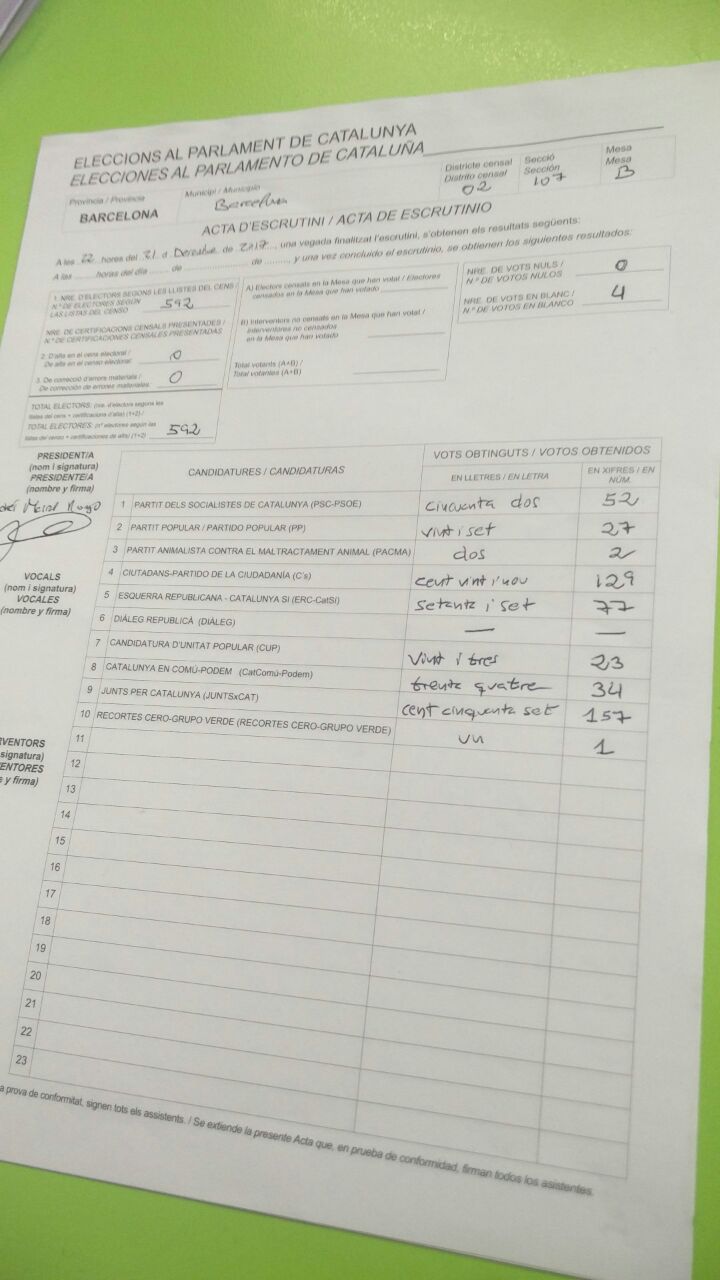 ELECCIONS AL PARLAMENT DE CATALUNYA
ELECCIONES AL PARLAMENTO DE CATALUÑA
Província / Provincia
BARCELONA
Municipi / Municipio
Barcelona
Districte censal
Distrito censal
02
Secció
Sección
107
Mesa
Mesa
B
ACTA D'ESCRUTINI / ACTA DE ESCRUTINIO
A les 22 hores del 21 d Desembre de 2017, una vegada finalitzat l'escrutini, s'obtenen els resultats següents:
A las ........ horas del día ....... de ........................ de ........., y una vez concluido el escrutinio, se obtienen los siguientes resultados:
1. NRE. D'ELECTORS SEGONS LES LLISTES DEL CENS /
N.º DE ELECTORES SEGÚN
LAS LISTAS DEL CENSO
592
NRE. DE CERTIFICACIONS CENSALS PRESENTADES /
N.º DE CERTIFICACIONES CENSALES PRESENTADAS
2. D'alta en el cens electoral /
De alta en el censo electoral
0
3. De correcció d'errors materials /
De corrección de errores materiales
0
TOTAL ELECTORS: (nre. d'electors segons les
llistes del cens + certificacions d'alta) (1+2) /
TOTAL ELECTORES: (nº electores según las
listas del censo + certificaciones de alta) (1+2)
592
A) Electors censats en la Mesa que han votat / Electores
censados en la Mesa que han votado
B) Interventors no censats en la Mesa que han votat /
Interventores no censados
en la Mesa que han votado
Total votants (A+B) /
Total votantes (A+B)
NRE. DE VOTS NULS /
N.º DE VOTOS NULOS
0
NRE. DE VOTS EN BLANC /
N.º DE VOTOS EN BLANCO
4
PRESIDENT/A
(nom i signatura)
PRESIDENTE/A
(nombre y firma)
VOCALS
(nom i signatura)
VOCALES
(nombre y firma)
RVENTORS
signatura)
ENTORES
e y firma)
CANDIDATURES / CANDIDATURAS
VOTS OBTINGUTS / VOTOS OBTENIDOS
EN LLETRES / EN LETRA
EN XIFRES / EN NÚM.
1 PARTIT DELS SOCIALISTES DE CATALUNYA (PSC-PSOE) cincuenta dos 52
2 PARTIT POPULAR / PARTIDO POPULAR (PP) vint i set 27
3 PARTIT ANIMALISTA CONTRA EL MALTRACTAMENT ANIMAL (PACMA) dos 2
4 CIUTADANS-PARTIDO DE LA CIUDADANÍA (C's) cent vint i nou 129
5 ESQUERRA REPUBLICANA - CATALUNYA SÍ (ERC-CatSí) setanta i set 77
6 DIÀLEG REPUBLICÀ (DIÀLEG) — —
7 CANDIDATURA D'UNITAT POPULAR (CUP) vint i tres 23
8 CATALUNYA EN COMÚ-PODEM (CatComú-Podem) trenta quatre 34
9 JUNTS PER CATALUNYA (JUNTSxCAT) cent cinquenta set 157
10 RECORTES CERO-GRUPO VERDE (RECORTES CERO-GRUPO VERDE) un 1
11
12
13
14
15
16
17
18
19
20
21
22
23
a prova de conformitat, signen tots els assistents. / Se extiende la presente Acta que, en prueba de conformidad, firman todos los asistentes.